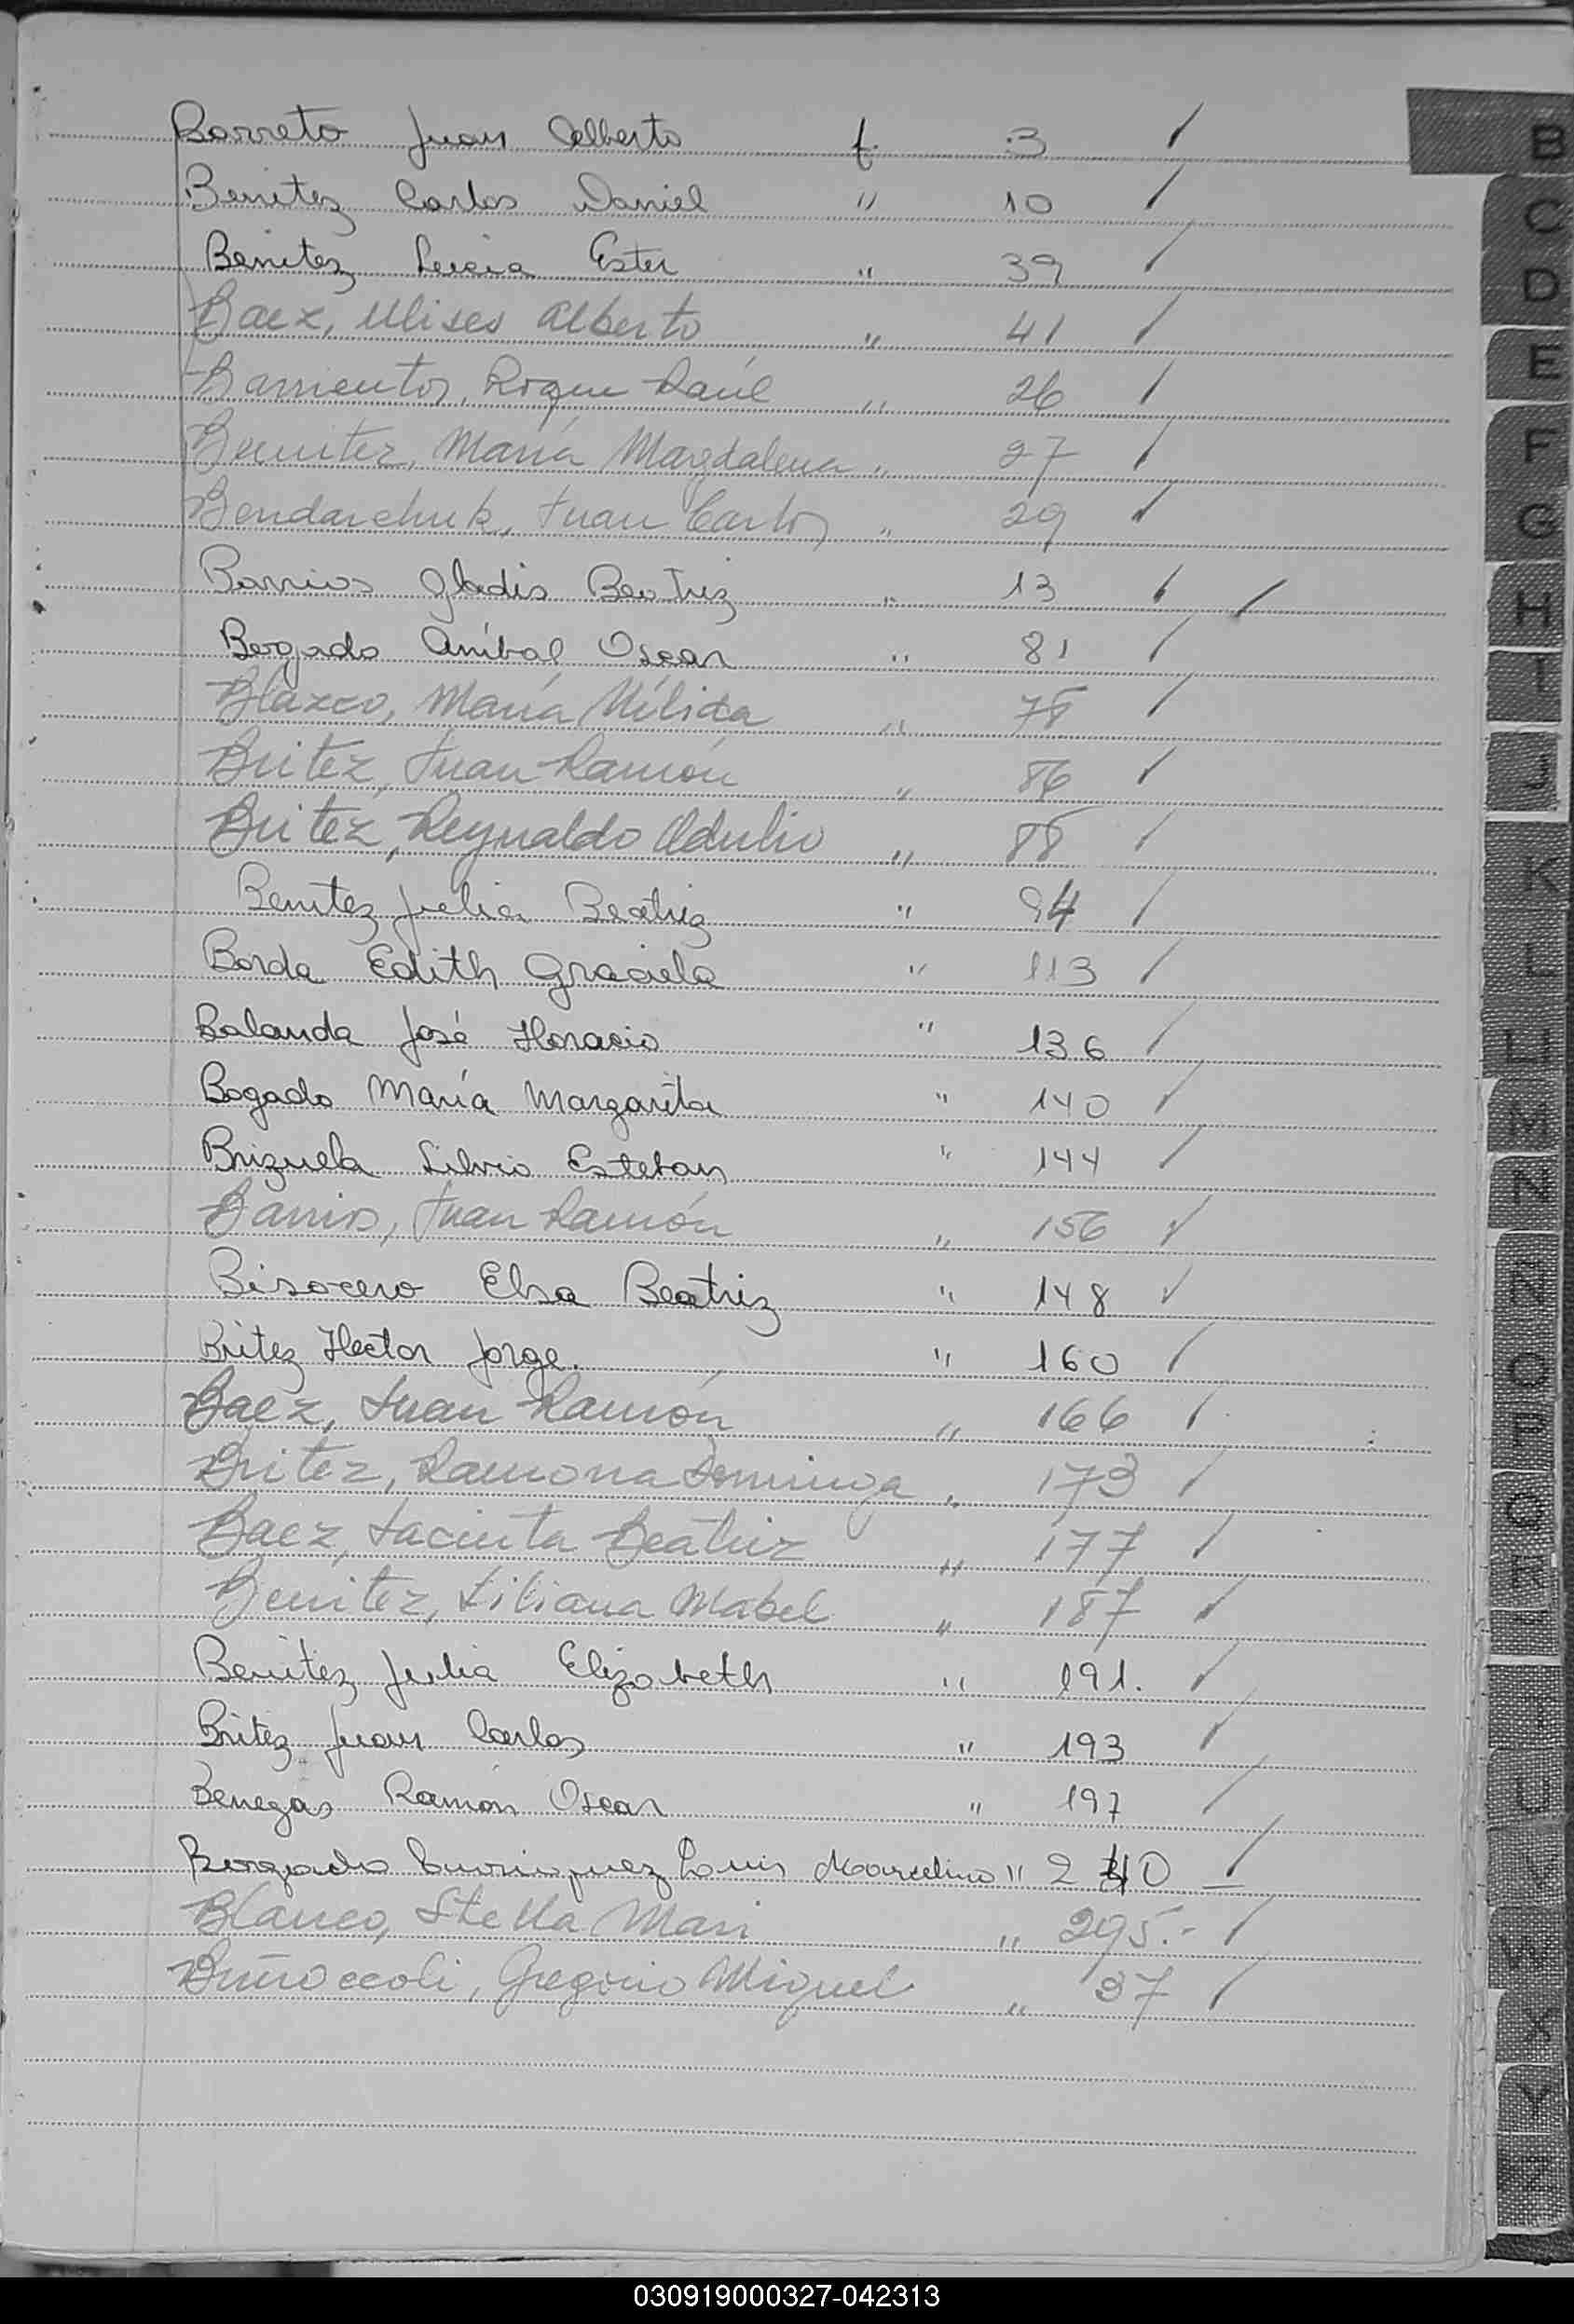 Barreto Juan Alberto f. 3 ✓
Benitez Carlos Daniel " 10 ✓
Benitez Lucia Ester " 39 ✓
Baez, Ulises Alberto " 41 ✓
Barrientos, Roque Raúl " 26 ✓
Benitez, María Magdalena " 27 ✓
Bendarchuk, Juan Carlos " 29 ✓
Barrios Gladis Beatriz " 13 ✓ ✓
Bogado Aníbal Oscar " 81 ✓
Blazco, María Nélida " 78 ✓
Britez, Juan Ramón " 86 ✓
Britez, Reynaldo Obdulio " 88 ✓
Benitez Julia Beatriz " 94 ✓
Borda Edith Graciela " 113 ✓
Balanda José Horacio " 136 ✓
Bogado María Margarita " 140 ✓
Brizuela Silvio Esteban " 144 ✓
Barrios, Juan Ramón " 156 ✓
Bisocero Elsa Beatriz " 148 ✓
Britez Hector Jorge. " 160 ✓
Baez, Juan Ramón " 166 ✓
Britez, Ramona Dominga " 173 ✓
Baez, Jacinta Beatriz " 177 ✓
Benitez, Liliana Mabel " 187 ✓
Benitez Julia Elizabeth " 191. ✓
Britez Juan Carlos " 193 ✓
Benegas Ramón Oscar " 197 ✓
Bogado Luis Marcelino " 240 ✓
Blanco, Stella Mari " 295.- ✓
Gregorio Miguel " 37 ✓
B
C
D
E
F
G
H
I
J
K
L
M
N
O
P
Q
R
U
V
W
X
Y
Z
030919000327-042313